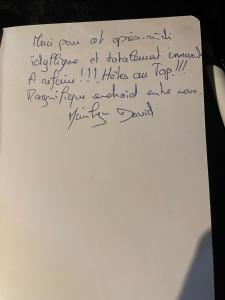 Merci pour cet après-midi
idyllique et totalement innovant
A refaire!!! Hôtes au Top!!!
Magnifique endroit entre nous.
Marilyn David